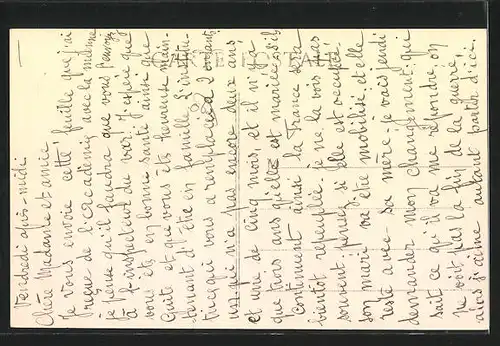 Vendredi après-midi
Chère Madame et amie
Je vous envoie cette feuille que j'ai
reçue de l'académie avec la mienne
je pense qu'il faudra que vous l'envoyez
à l'inspecteur du var. J'espère que
vous êtes en bonne santé ainsi que
et que vous êtes heureuse main-
tenant d'être en famille. L'institu-
trice qui vous a remplacée a 2 enfants
un qui n'a pas encore deux ans
et une de cinq mois, et il n'y a
que trois ans qu'elle est mariée, s'ils
continuent ainsi la France sera
bientôt repeuplée je ne la vois pas
souvent, pensez si elle est occupée
son mari va être mobilisé et elle
reste avec sa mère. je vais jeudi
demander mon changement, qui
sait ce qu'il va me répondre. on
ne voit pas la fin de la guerre,
alors j'aime autant partir d'ici.